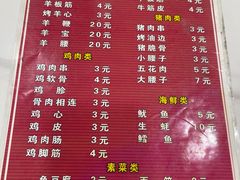 羊板筋 4元
烤羊心 3元
羊鞭 20元
羊宝 20元
羊腰 20元
鸡肉类
鸡肉串 3元
鸡软骨 4元
鸡胗 3元
骨肉相连 3元
鸡心 3元
鸡皮 3元
鸡肉肠 3元
鸡脚筋 4元
牛筋皮 4元
猪肉类
猪肉串 3元
烤油边 3元
猪脆骨 3元
小腰子 3元
五花肉 5元
大腰子 7元
海鲜类
鱿鱼 5元
生蚝 10元
鳕鱼
素菜类